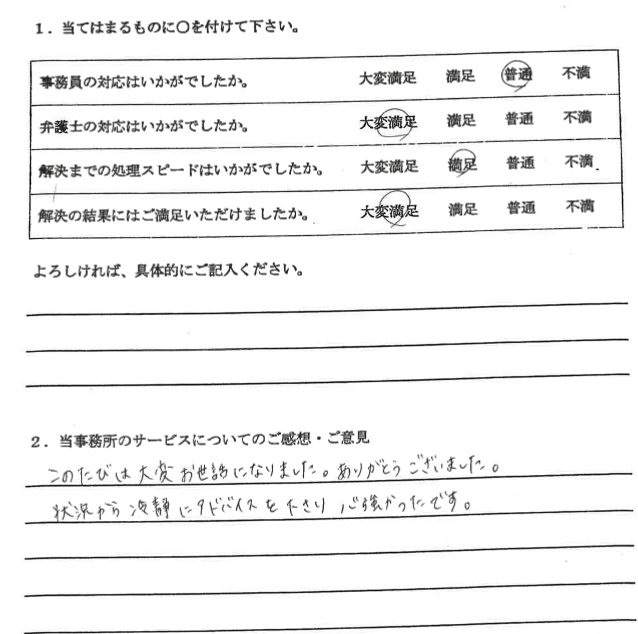 1．当てはまるものに〇を付けて下さい。
事務員の対応はいかがでしたか。 大変満足 満足 普通 不満
弁護士の対応はいかがでしたか。 大変満足 満足 普通 不満
解決までの処理スピードはいかがでしたか。 大変満足 満足 普通 不満
解決の結果にはご満足いただけましたか。 大変満足 満足 普通 不満
よろしければ、具体的にご記入ください。
2．当事務所のサービスについてのご感想・ご意見
このたびは大変お世話になりました。ありがとうございました。
状況から冷静にアドバイスを下さり心強かったです。